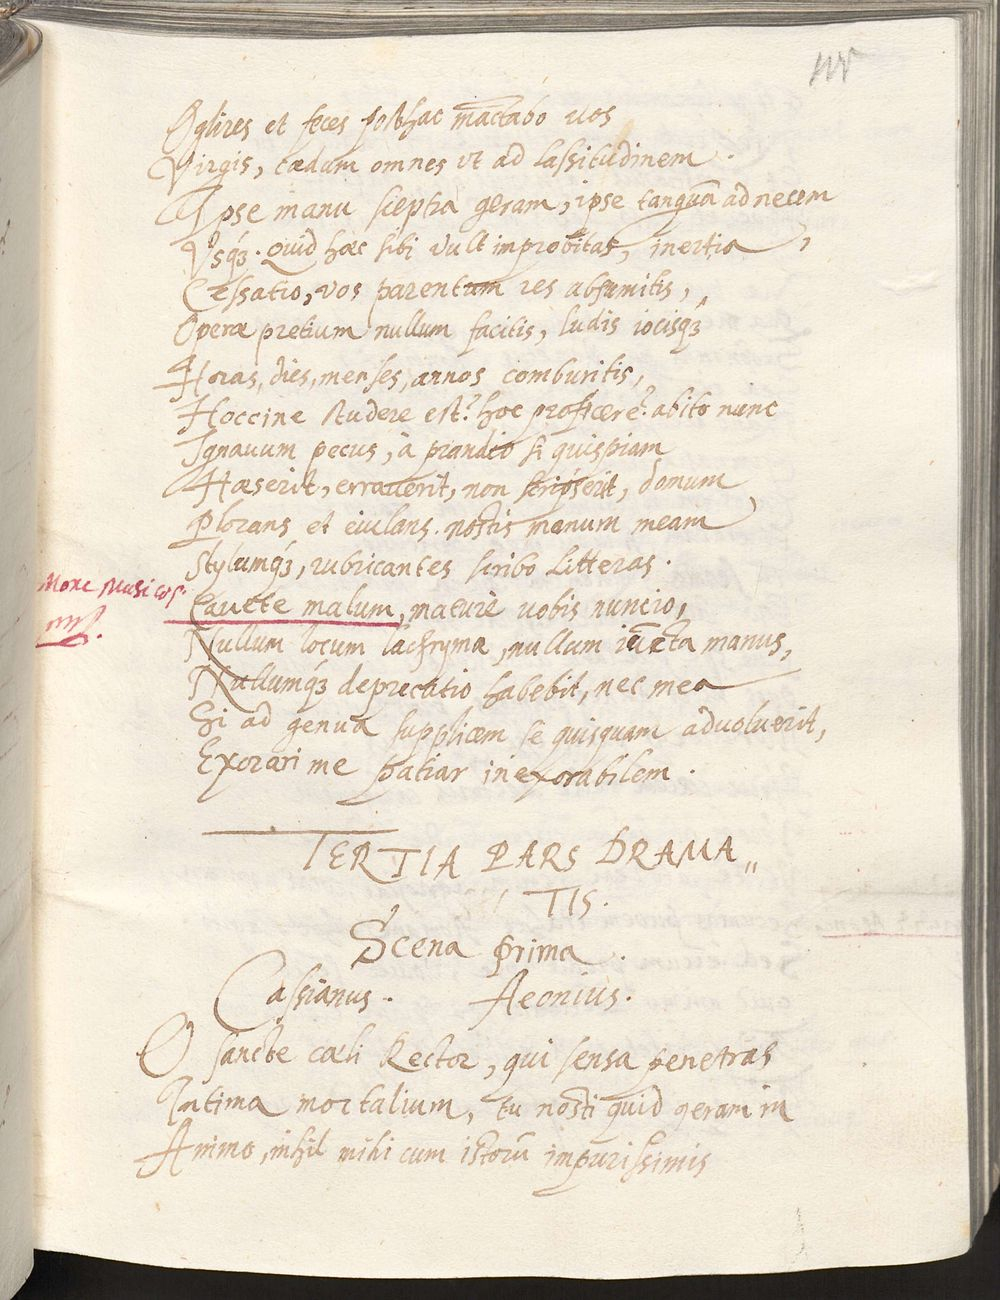 O glires et feces posthac mactabo vos
Virgis, cædam omnes vt ad lassitudinem.
Ipse manu sceptra geram, ipse tanquã ad necem
Vsq₃. Quid hæc sibi vult improbitas, inertia,
Cessatio, vos parentum res absumitis,
Operæ pretium nullum facitis, ludis iocisq₃
Horas, dies, menses, annos comburitis,
Hoccine studere est? hoc proficere? abito nunc
Ignauum pecus, à prandio si quispiam
Hæserit, errauerit, non scripserit, domum
Plorans et eiulans. nostis manum meam
Stylumq́₃, rubricantes scribo litteras.
More Musicos.
Cauete malum, maturè uobis nuncio,
Nullum locum lachrymæ, nullum iuncta manus,
Nullumq́₃ deprecatio habebit, nec mea
Si ad genua supplicem se quisquam aduoluerit,
Exorari me patiar inexorabilem.
TERTIA PARS DRAMA„
TIS.
Scena Prima.
Cassianus. Aeonius.
O sancte cæli Rector, qui sensa penetras
Intima mortalium, tu nosti quid geram in
Animo, nihil mihi cum istorũ impurissimis